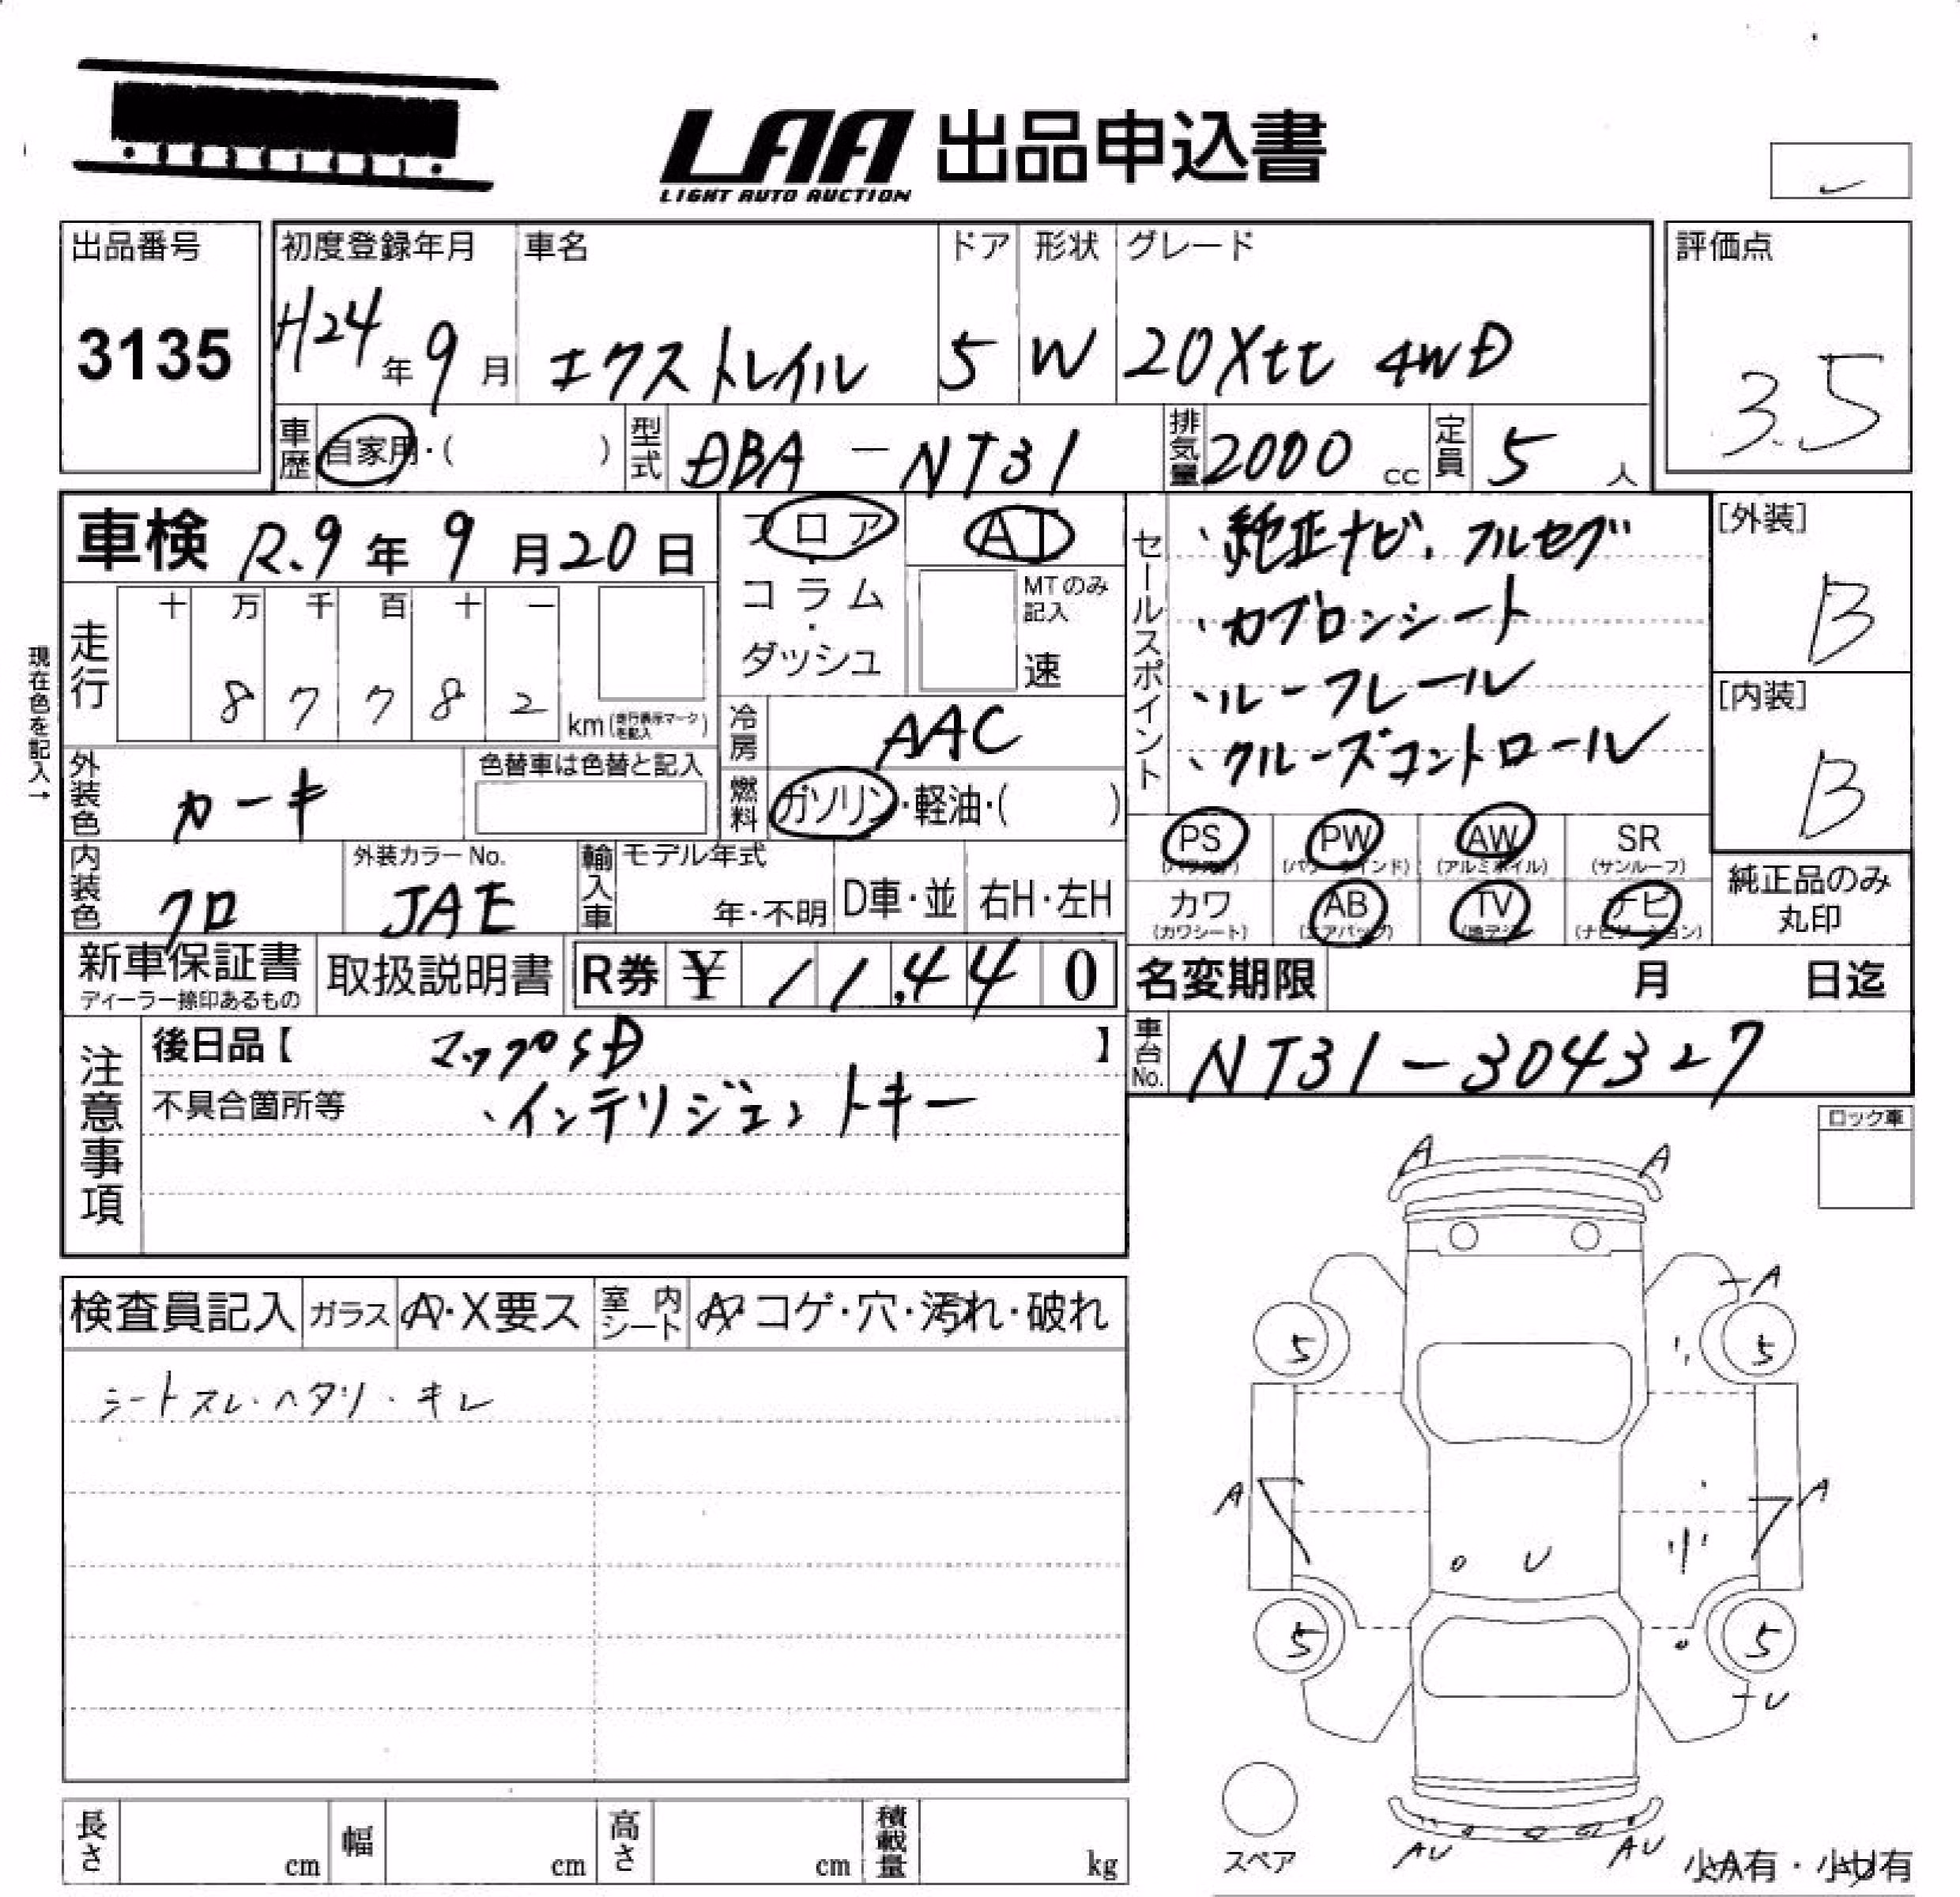 LAA 出品申込書
LIGHT AUTO AUCTION
出品番号
3135
初度登録年月
H24年9月
車名
エクストレイル
ドア
5
形状
W
グレード
20Xtt 4WD
評価点
3.5
車歴 自家用・( )
型式 DBA-NT31
排気量 2000 cc
定員 5 人
現在色を記入→
車検 R.9年9月20日
フロア・コラム・ダッシュ
AT
MTのみ記入
速
走行
十 万 千 百 十 一
8 7 7 8 2
km(走行表示マークを記入)
冷房 AAC
燃料 ガソリン・軽油・( )
外装色 カーキ
色替車は色替と記入
内装色 クロ
外装カラーNo. JAE
輸入車
モデル年式
年・不明
D車・並
右H・左H
セールスポイント
・純正ナビ、フルセグ
・カブロンシート
・ルーフレール
・クルーズコントロール
[外装]
B
[内装]
B
PS (パワステ)
PW (パワーウインド)
AW (アルミホイル)
SR (サンルーフ)
カワ (カワシート)
AB (エアバッグ)
TV (地デジ)
ナビ (ナビゲーション)
純正品のみ丸印
新車保証書
ディーラー捺印あるもの
取扱説明書
R券 ¥ 11,440
名変期限 月 日迄
車台No. NT31-304327
注意事項
後日品【 マップSD 】
不具合箇所等 、インテリジェントキー
ロック車
検査員記入
ガラス A・X要ス
室内シート A・コゲ・穴・汚れ・破れ
シートスレ・ヘタリ・キレ
A A
A
5 5
A A
U
5 5
U
AU AU
スペア
小A有・小U有
長さ cm
幅 cm
高さ cm
積載量 kg